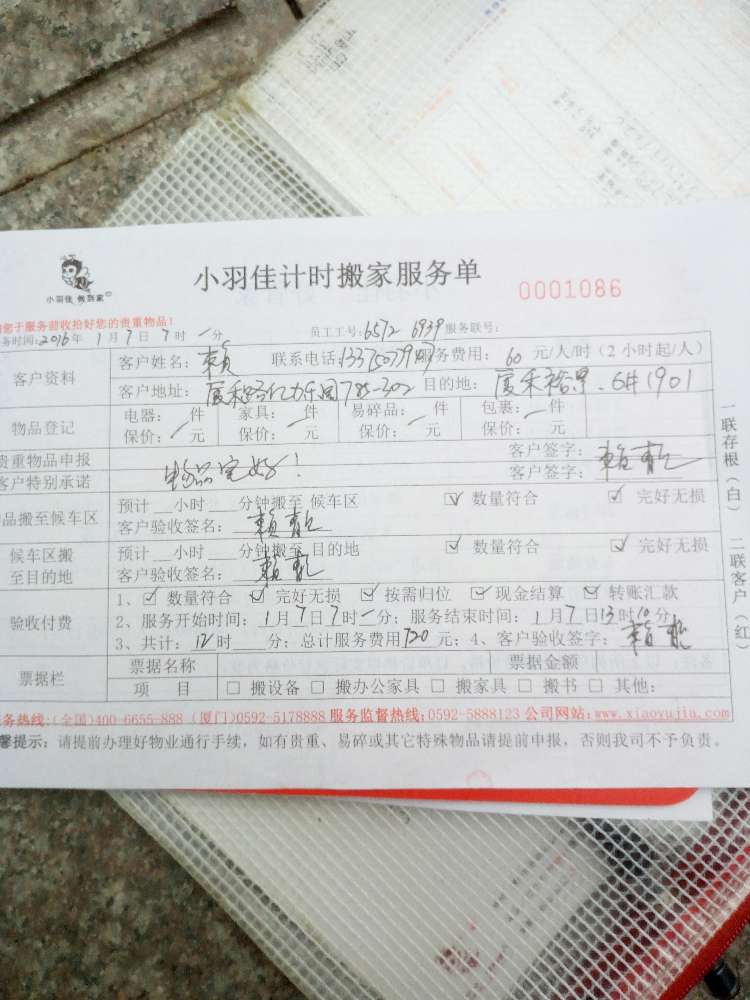 小羽佳 做到家
小羽佳计时搬家服务单 0001086
您于服务前收拾好您的贵重物品!
务时间:2016年 1月7日7时 一分 员工工号:6572 6939 服务联号:
客户资料 客户姓名: 赖 联系电话: 服务费用: 60 元/人/时(2小时起/人)
客户地址: 785-302 目的地: 1901
物品登记 电器: 件 家具: 件 易碎品: 件 包裹: 件
保价: 元 保价: 元 保价: 元 保价: 元
贵重物品申报 客户签字:
客户特别承诺 物品完好! 客户签字: 赖
品搬至候车区 预计__小时__分钟搬至 候车区 ☑ 数量符合 ☑ 完好无损
客户验收签名: 赖
候车区搬 预计__小时__分钟搬至 目的地 ☑ 数量符合 ☑ 完好无损
至目的地 客户验收签名: 赖
验收付费 1、☑ 数量符合 ☑ 完好无损 ☑ 按需归位 ☑ 现金结算 ☑ 转账汇款
2、服务开始时间: 1月7日7时一分; 服务结束时间: 1月7日13时10分
3、共计: 12时__分; 总计服务费用720元; 4、客户验收签字: 赖
票据栏 票据名称 票据金额
项 目 □ 搬设备 □ 搬办公家具 □ 搬家具 □ 搬书 □ 其他:
务热线:(全国)400-6655-888 (厦门)0592-5178888 服务监督热线:0592-5888123 公司网站:www.xiaoyujia.com
馨提示:请提前办理好物业通行手续,如有贵重、易碎或其它特殊物品请提前申报,否则我司不予负责。
一联存根(白) 二联客户(红)